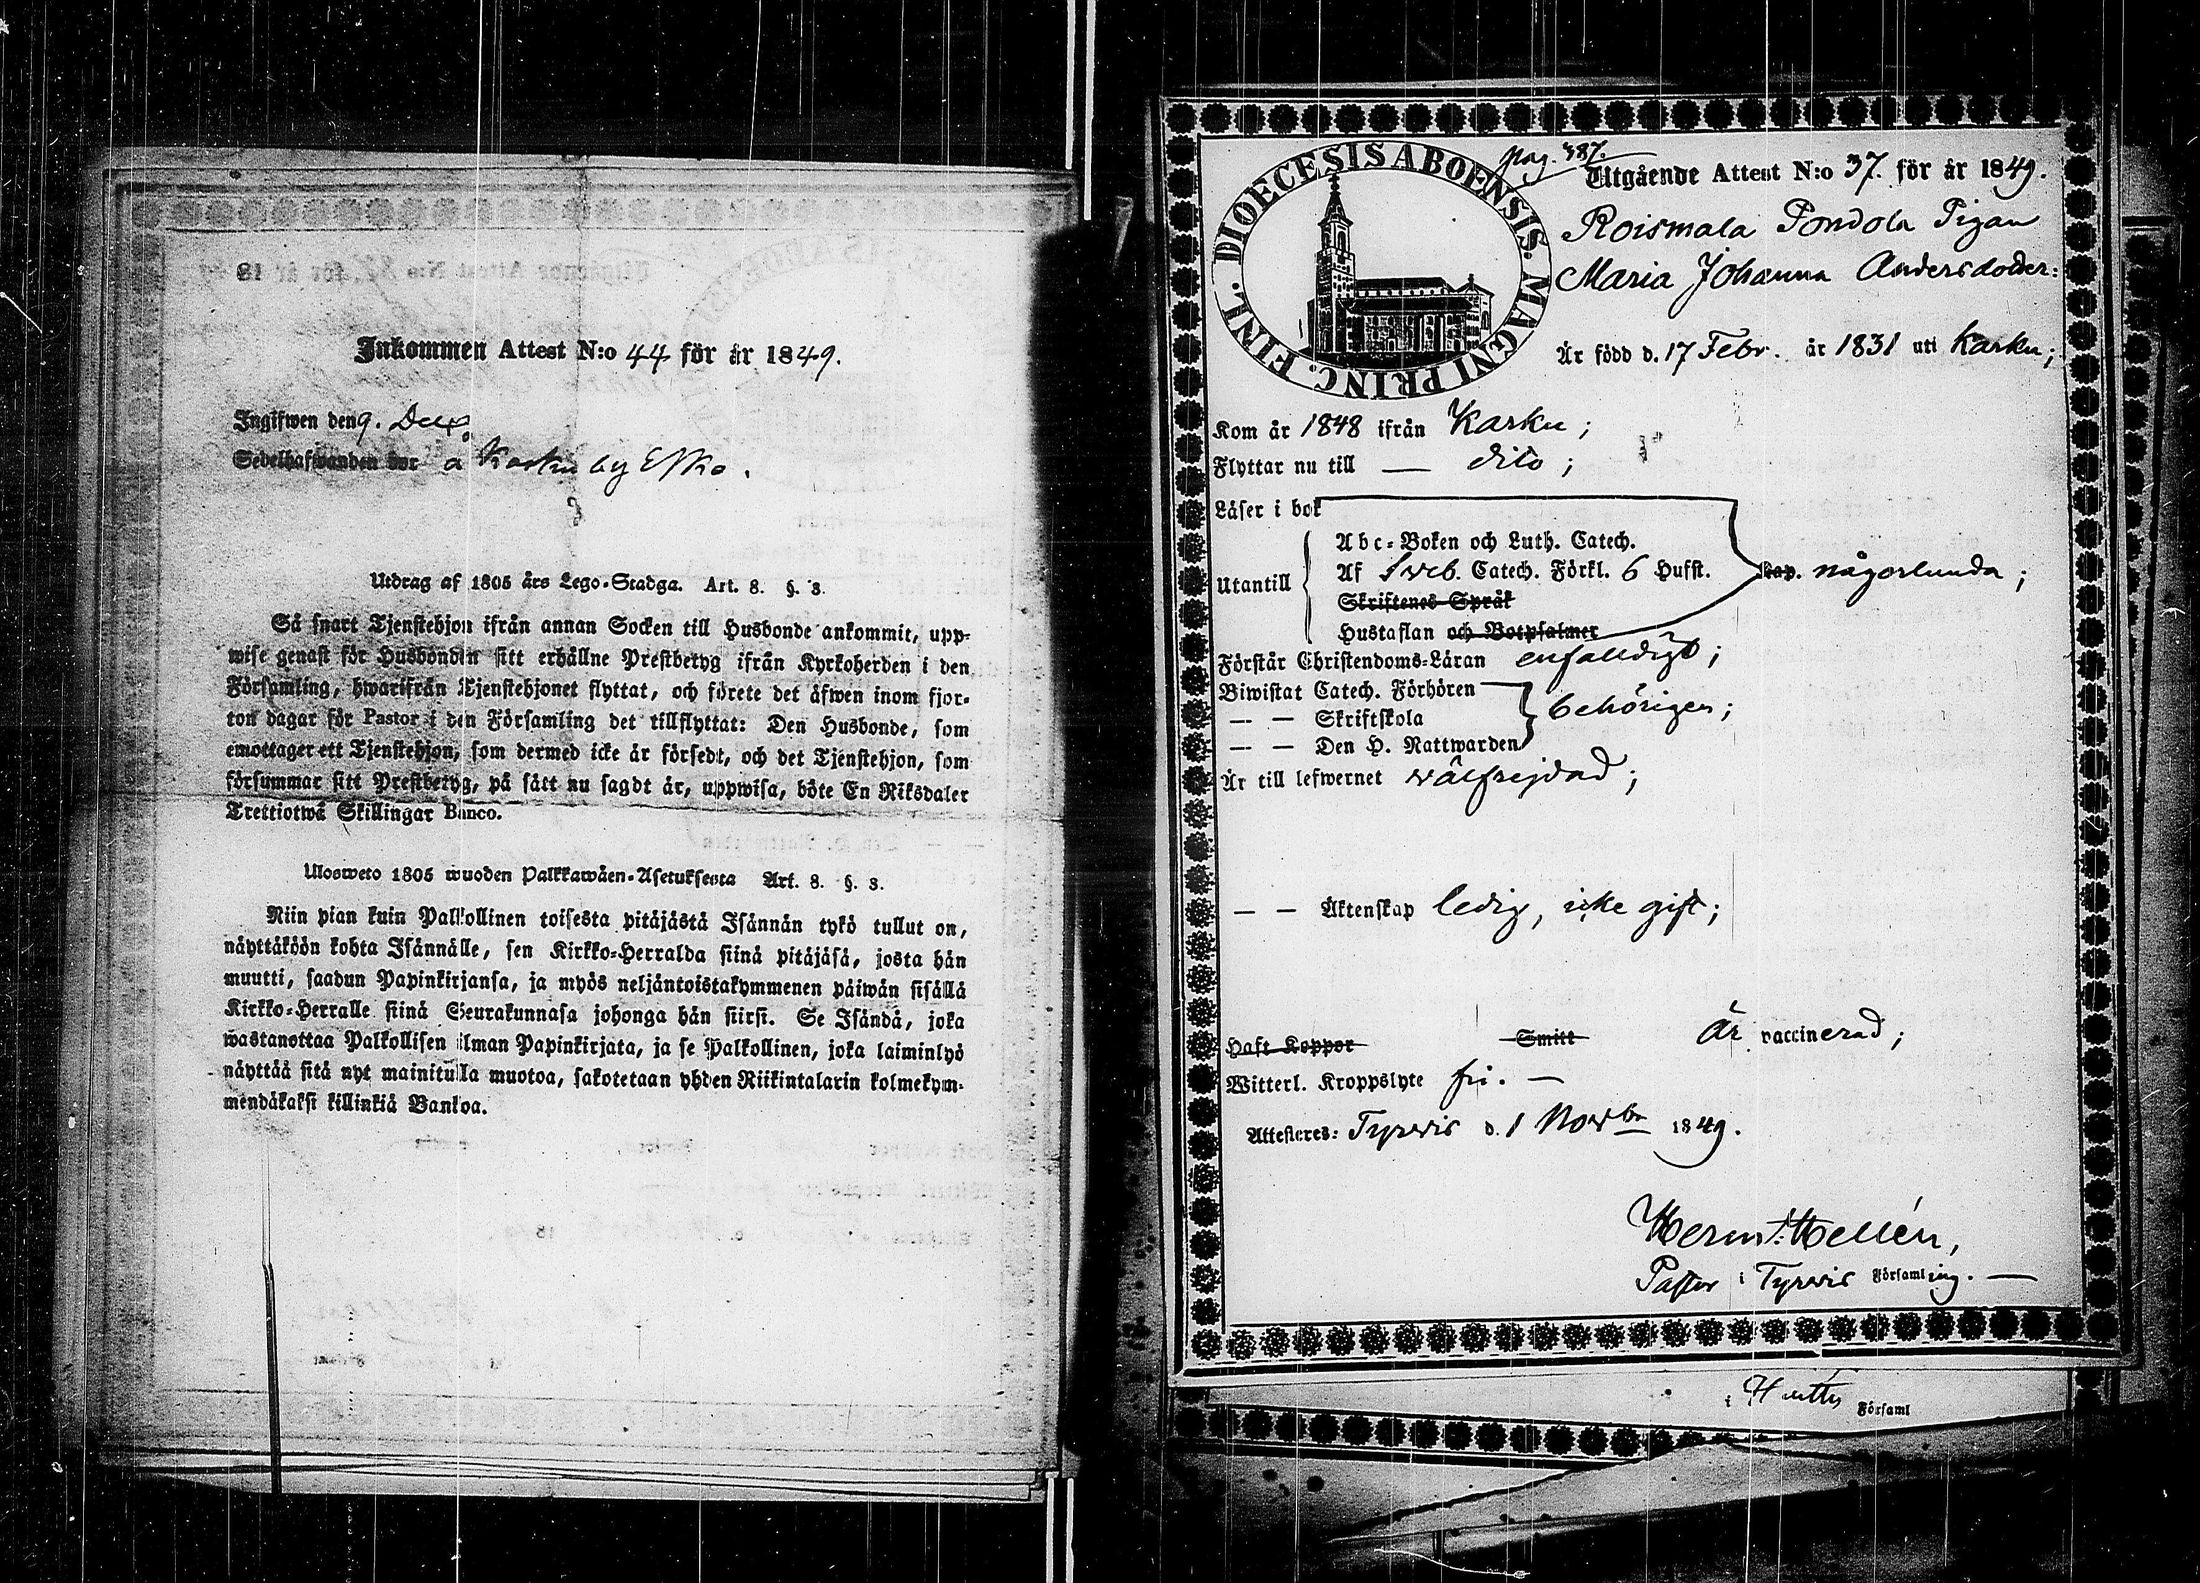 Inkommen Attest N:o 44 för år 1849.
Ingifwen den 9. Dec.
Sedelhafwanden bor a Karku by Esko.
Utdrag af 1805 års Lego-Stadga. Art. 8. §. 3.
Så snart Tjenstehjon ifrån annan Socken till Husbonde ankommit, upp-
wise genast för Husbonden sitt erhållne Prestbetyg ifrån Kyrkoherden i den
Församling, hwarifrån Tjenstehjonet flyttat, och förete det äfwen inom fjor-
ton dagar för Pastor i den Församling det tillflyttat: Den Husbonde, som
emottager ett Tjenstehjon, som dermed icke är försedt, och det Tjenstehjon, som
försummar sitt Prestbetyg, på sätt nu sagdt är, uppwisa, böte En Riksdaler
Trettiotwå Skillingar Banco.
Ulosweto 1805 wuoden Palkkawäen-Asetuksesta Art. 8. §. 3.
Niin pian kuin Palkollinen toisesta pitäjästä Isännän tykö tullut on,
näyttäköön kohta Isännälle, sen Kirkko-Herralda siinä pitäjäsä, josta hän
muutti, saadun Papinkirjansa, ja myös neljäntoistakymmenen päiwän sisällä
Kirkko-Herralle siinä Seurakunnasa johonga hän siirsi. Se Isändä, joka
wastanottaa Palkollisen ilman Papinkirjata, ja se Palkollinen, joka laiminlyö
näyttää sitä nyt mainitulla muotoa, sakotetaan yhden Riikintalarin kolmekym-
mendäkaksi killinkiä Bankoa.
DIOECESIS ABOENSIS. MAGNI PRINC. FINL.
pag. 387.
Utgående Attest N:o 37. för år 1849.
Roismala Pondola Pigan
Maria Johanna Andersdotter:
Är född d. 17 Febr. år 1831 uti Karku;
Kom år 1848 ifrån Karku;
Flyttar nu till — dito;
Läser i bok
Abc-Boken och Luth. Catech.
Utantill Af Sveb. Catech. Förkl. 6 Hufst. Kap. någorlunda;
Skriftenes Språk
Hustaflan och Botpsalmer
Förstår Christendoms-Läran enfaldigt;
Biwistat Catech. Förhören
— — Skriftskola behörigen;
— — Den H. Nattwarden
Är till lefwernet välfrejdad;
— — Äktenskap ledig, icke gift;
Haft Koppor Smitt Är vaccinerad;
Witterl. Kroppslyte fri. —
Attesteres: Tyrvis d. 1 Novbr 1849.
Herm: Hellén,
Pastor i Tyrvis Församling. —
i Huittis Församl